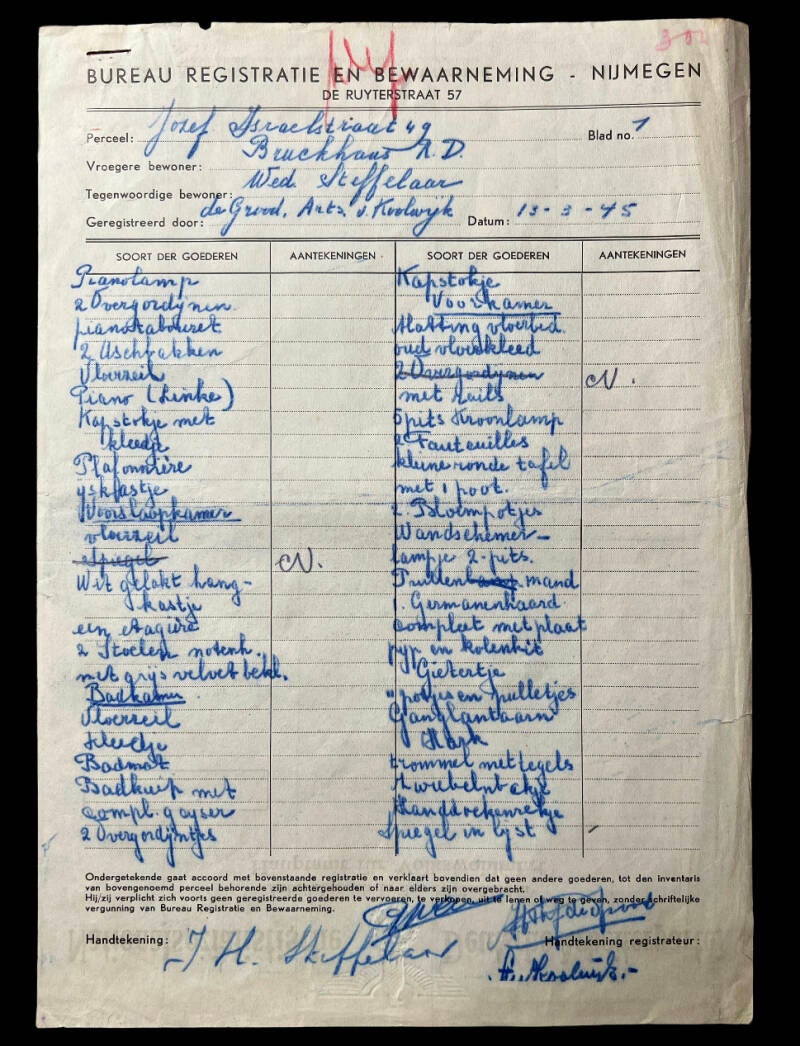 BUREAU REGISTRATIE EN BEWAARNEMING - NIJMEGEN
DE RUYTERSTRAAT 57
Perceel: Jozef Israelstraat 49
Blad no. 1
Vroegere bewoner: Bruckhaus N.D.
Tegenwoordige bewoner: Wed. Steffelaar
Geregistreerd door: de Grood, Arts. v. Koolwijk Datum: 13-3-45
SOORT DER GOEDEREN AANTEKENINGEN SOORT DER GOEDEREN AANTEKENINGEN
Pianolamp
2 Overgordijnen
pianotabouret
2 Aschbakken
Vloerzeil
Piano (Linke)
Kapstokje met
kleedje
Plafonnière
yskastje
Voorslaapkamer
vloerzeil
Spiegel
CN.
Wit gelakt hang-
kastje
een etagère
2 Stoelen notenh.
met grijs velvet bekl.
Badkamer
Vloerzeil
Kleedje
Badmat
Badkuip met
compl. gayser
2 Overgordijntjes
Kapstokje
Voorkamer
Matting vloerbed.
oud vloerkleed
2 Overgordijnen
CN.
met rails
5 pits Kroonlamp
2 Fauteuilles
kleine ronde tafel
met 1 poot.
2. Bloempotjes
Wandschemer-
lampje 2-pits.
Prullen mand
1. Germanenhaard
compleet met plaat
pyp en kolenkit
Gietertje
" potjes en pulletjes
Ganglantaarn
Hark
trommel met tegels
Handdoekenrekje
Spiegel in lijst
Ondergetekende gaat accoord met bovenstaande registratie en verklaart bovendien dat geen andere goederen, tot den inventaris
van bovengenoemd perceel behorende zijn achtergehouden of naar elders zijn overgebracht.
Hij/zij verplicht zich voorts geen geregistreerde goederen te vervoeren, te verkopen, uit te lenen of weg te geven, zonder schriftelijke
vergunning van Bureau Registratie en Bewaarneming.
Handtekening: J H. Steffelaar
Handtekening registrateur: